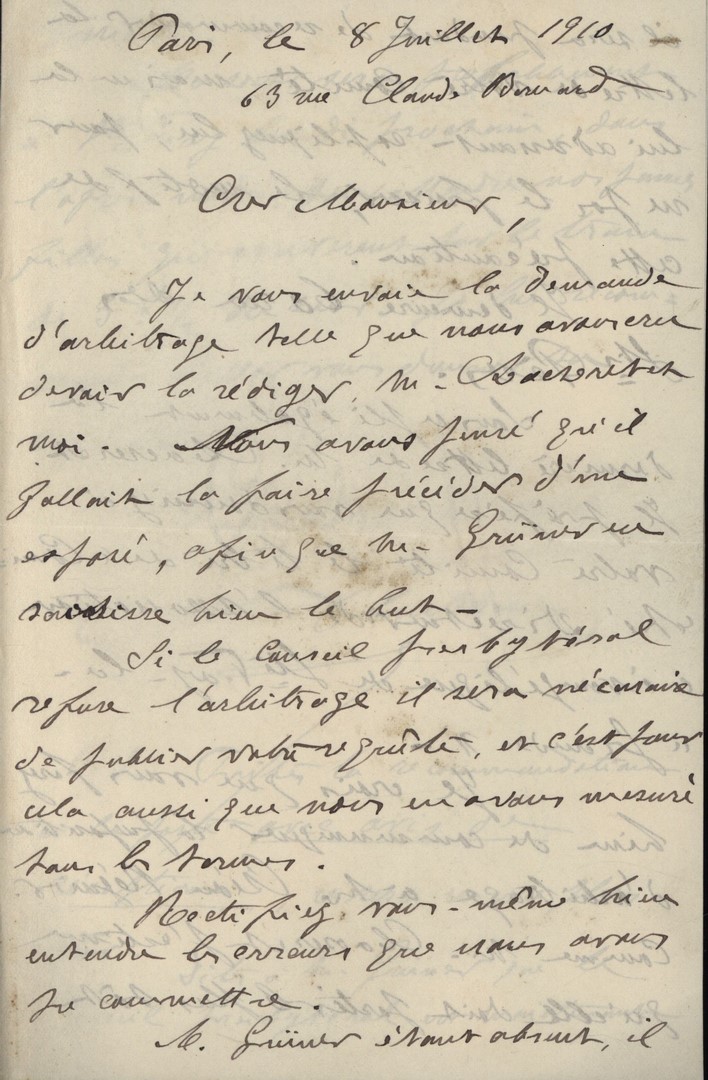 Paris, le 8 Juillet 1910
63 rue Claude Bernard
Cher Monsieur,
Je vous envoie la demande
d'arbitrage telle que nous avons cru
devoir la rédiger, M.
moi. Nous avons pensé qu'il
fallait la faire précéder d'un
exposé, afin que M. Grüner en
saisisse bien le but -
Si le Conseil presbytéral
refuse l'arbitrage il sera nécessaire
de publier votre requête, et c'est pour
cela aussi que nous en avons mesuré
tous les termes.
Rectifiez vous-même bien
entendu les erreurs que nous avons
pu commettre.
M. Grüner étant absent, il